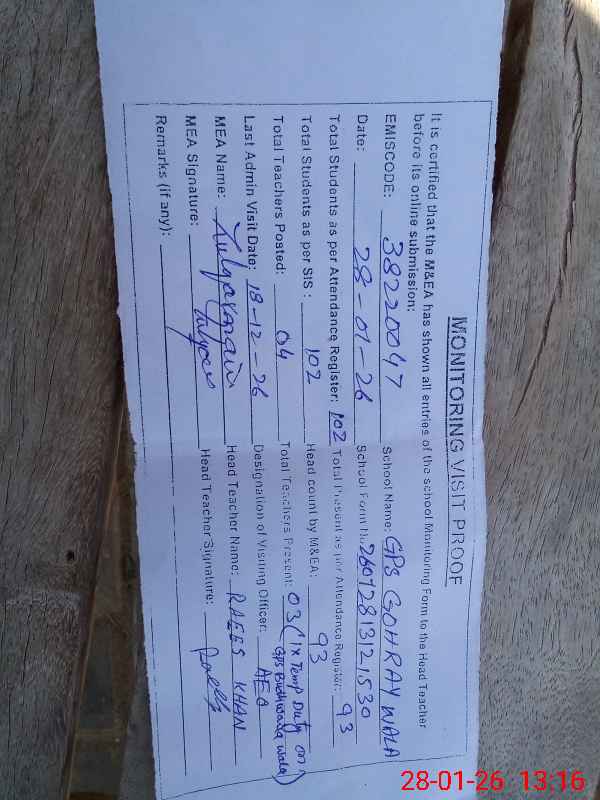 MONITORING VISIT PROOF
It is certified that the M&EA has shown all entries of the school Monitoring Form to the Head Teacher
before its online submission:
EMISCODE: 38220047 School Name: GPS GOHRAY WALA
Date: 28-01-26 School Form No: 26012813121530
Total Students as per Attendance Register: 102 Total Present as per Attendance Register: 93
Total Students as per SIS: 102 Head count by M&EA: 93
Total Teachers Posted: 04 Total Teachers Present: 03 (1x Temp Duty on
GPS Budhwana Wala)
Last Admin Visit Date: 18-12-26 Designation of Visiting Officer: AEO
MEA Name: Zulqarnain Head Teacher Name: RAEES KHAN
MEA Signature: Head Teacher Signature: Raees
Remarks (if any):
28-01-26 13:16